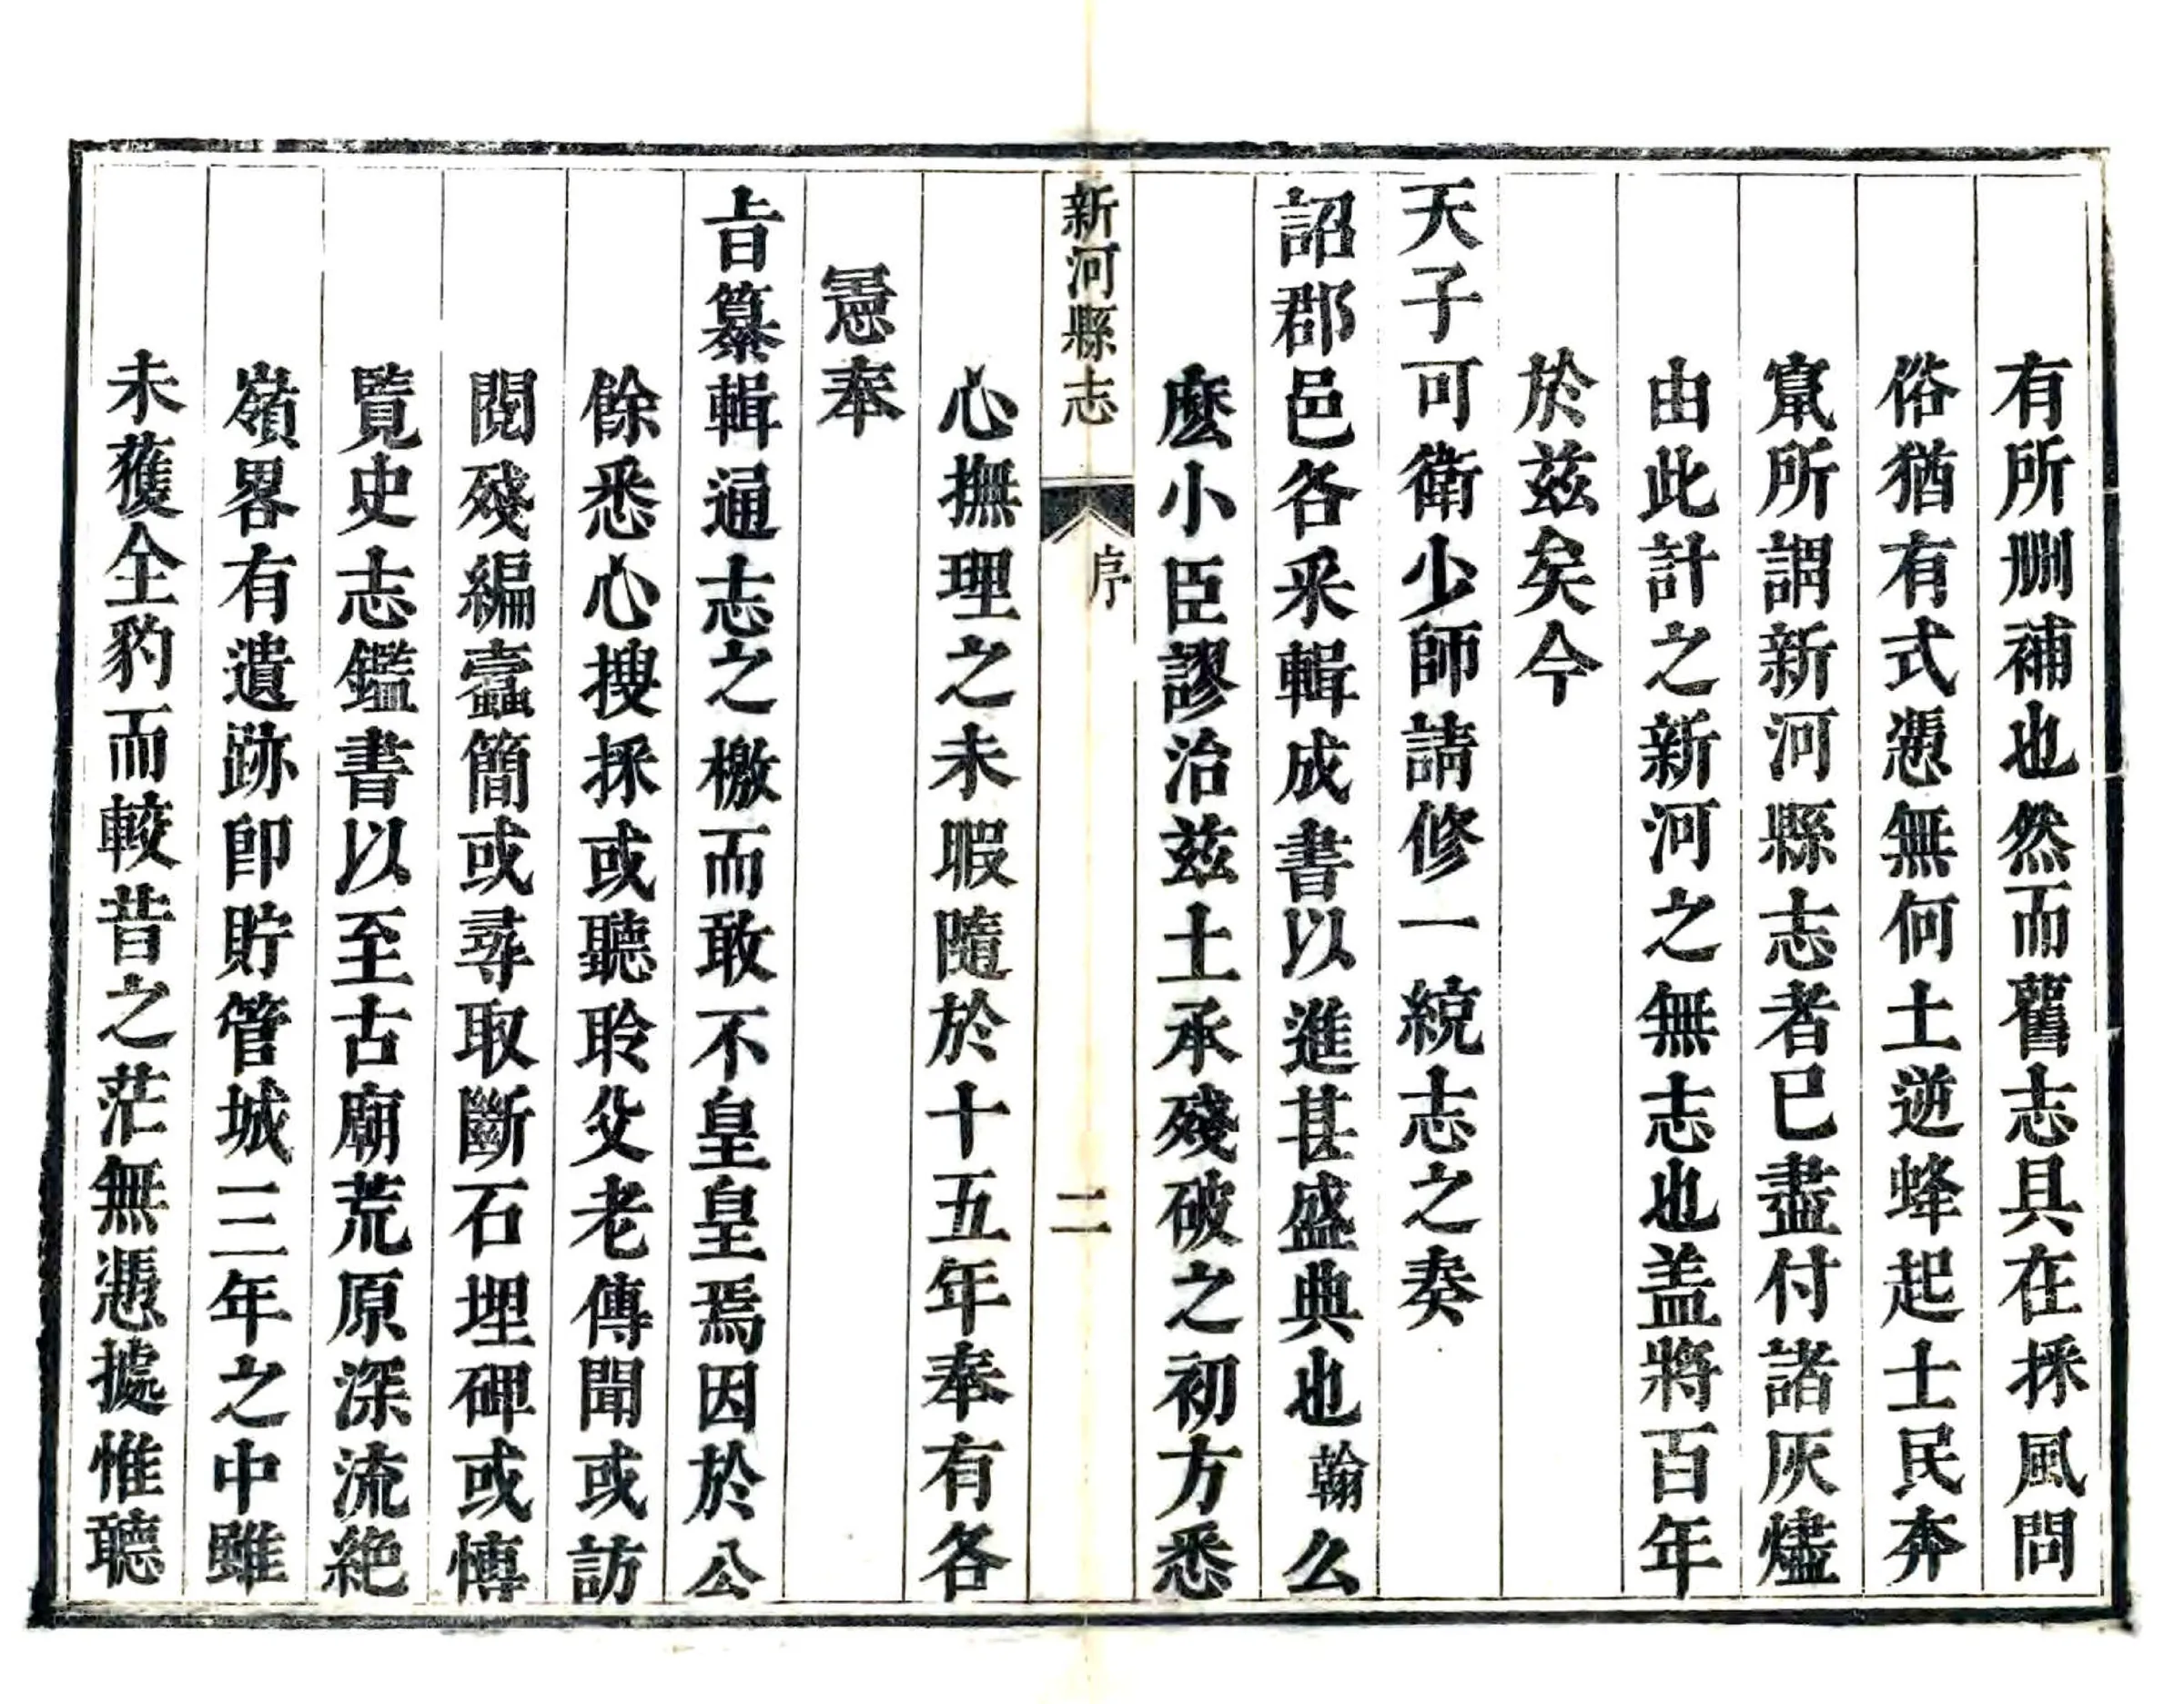 有所刪補也然而舊志具在採風問
俗猶有式憑無何土逆蜂起士民奔
竄所謂新河縣志者巳盡付諸灰燼
由此計之新河之無志也盖將百年
於兹矣今
天子可衛少師請修一統志之奏
詔郡邑各采輯成書以進甚盛典也翰么
麽小臣謬治兹土承殘破之初方悉
新河縣志 序 二
心撫理之未暇隨於十五年奉有各
憲奉
旨纂輯通志之檄而敢不皇皇焉因於公
餘悉心搜採或聽聆父老傳聞或訪
閱殘編蠹簡或尋取斷石埋碑或博
覽史志鑑書以至古廟荒原深流絶
嶺畧有遺跡卽貯管城三年之中雖
未獲全豹而較昔之茫無憑據惟聽